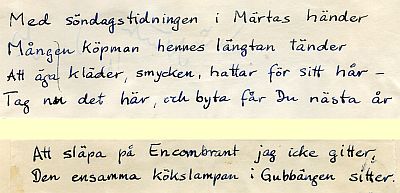 Med söndagstidningen i Märtas händer
Mången köpman hennes längtan tänder
Att äga kläder, smycken, hattar för sitt hår –
Tag nu det här, och byta får Du nästa år
Att släpa på Encombrant jag icke gitter,
Den ensamma kökslampan i Gubbängen sitter.